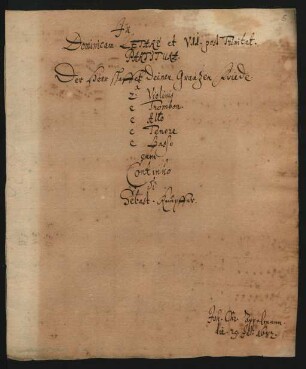 In
Dominicam LÆTARE et VIII post Trinitat.
PARTITURA
Der Herr schaffet deinen Grentzen Friede
2 Violini
e Trombon.
e Alto
e Tenore
e Basso
con
Continuo
di
Sebast. Knüpffer.
Joh. Chr.
1682.